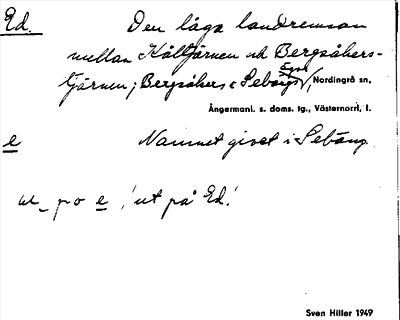 Ed. Den låga landremsan
mellan Kåltjärnen och Bergsåkers-
tjärnen; Bergsåkers o Sebångs
Egor, Nordingrå sn,
Ångermanl. s. doms. tg., Västernorrl. l.
e Namnet givet i Sebång
ut po e 'ut på Ed.'
Sven Hiller 1949